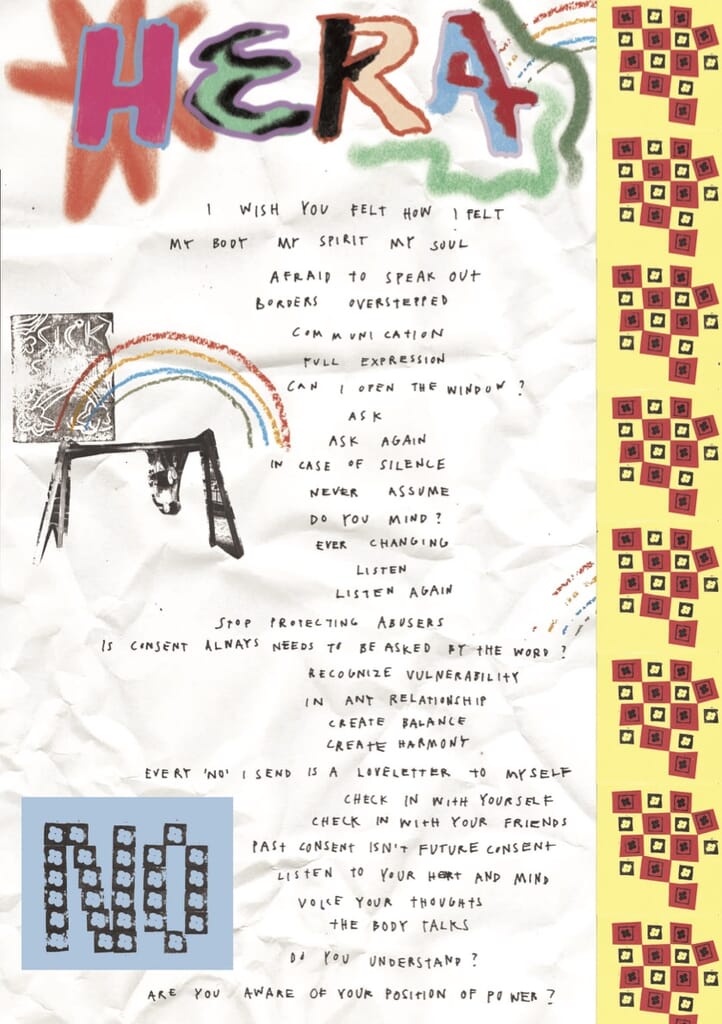 HERA
I WISH YOU FELT HOW I FELT
MY BODY MY SPIRIT MY SOUL
AFRAID TO SPEAK OUT
BORDERS OVERSTEPPED
COMMUNICATION
FULL EXPRESSION
CAN I OPEN THE WINDOW?
SICK
ASK
ASK AGAIN
IN CASE OF SILENCE
NEVER ASSUME
DO YOU MIND?
EVER CHANGING
LISTEN
LISTEN AGAIN
STOP PROTECTING ABUSERS
IS CONSENT ALWAYS NEEDS TO BE ASKED BY THE WORD?
RECOGNIZE VULNERABILITY
IN ANY RELATIONSHIP
CREATE BALANCE
CREATE HARMONY
EVERY 'NO' I SEND IS A LOVELETTER TO MYSELF
CHECK IN WITH YOURSELF
CHECK IN WITH YOUR FRIENDS
PAST CONSENT ISN'T FUTURE CONSENT
LISTEN TO YOUR HEART AND MIND
VOICE YOUR THOUGHTS
THE BODY TALKS
NO
DO YOU UNDERSTAND?
ARE YOU AWARE OF YOUR POSITION OF POWER?